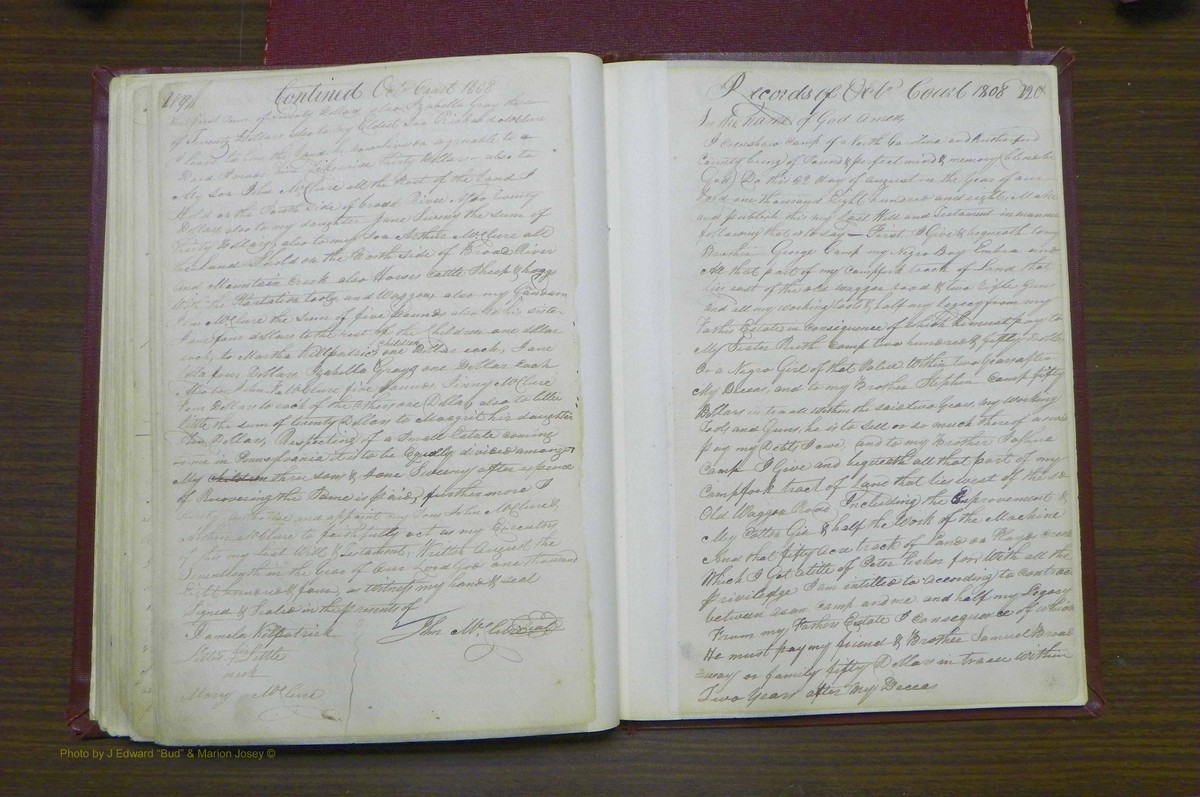 119 Contined Octr Court 1808
first sum of twenty Dollars also Izabella Gray the sum
of Twenty Dollars also to my Eldest Son Richard McClure
I leave to him the Land
Deed I made him Likewise thirty Dollars also to
My son John McClure all the Part of the Land I
Hold on the South Side of broad River Also twenty
Dollars also to my daughter Jane Sweny the sum of
thirty Dollars, also to my Son Arthur McClure all
the Land I hold on the North side of Broad River
And Mountain Creek also Horses Cattle Sheep & hogs
With the Plantation tools and Waggon also my Grandson
John McClure the sum of five pounds also to his sister
Jane four dollars to the rest of the Children one dollar
each, to Martha Kilpatrick children one Dollar each, Jane
four Dollars Izabella Grays one Dollar each
Also to John McClure five pounds, Jinny McClure
Ten Dollars to each of the others one Dollar also to
Little the sum of twenty Dollars to Margrit his daughter
Ten Dollars, Respecting of a Small Estate coming
to me in Pennsylvania it is to be Equally divided amongst
My children three sons & Jane Sweny after expence
of Recovering the Same is paid, further more I
authorise and appoint my son John McClure &
Arthur McClure to faithfully act as my Executors
of this my last Will & Testament, Written August the
Seventeenth in the Year of Our Lord God one thousand
Eight hundred & four, as witness my hand & seal
Signed & Sealed in the presents of
Pamela Kilpatrick John McClure seal
Little
Mary McClure
Records of Octr Court 1808 120
In the name of God Amen
I Crenshaw Camp of North Carolina and Rutherford
County being of Sound & perfect mind & memory blessed be
God, Do this 22 day of August in the Year of our
Lord one thousand Eight hundred and eight, Make
and publish this my Last Will and Testament in manner
following that is to say — First I Give & bequeath to my
Brother George Camp my Negro Boy and
All that part of my Campfork track of Land that
lies east of the old waggon road & two rifle Guns
and all my working tools & half my legacy from my
Fathers Estate in Consequence of which he must pay to
My Sister Ruth Camp two hundred & fifty Dollars
Or a Negro Girl of that Value Within two Years after
My Deceas, and to my Brother Stephen Camp fifty
Dollars in trade Within the said two Years, my Working
tools and Guns, he is to sell or so much thereof as will
pay my Debts I owe, and to my Brother Joshua
Camp I Give and bequeath all that part of my
Campfork tract of Land that lies west of the
Old Waggon Road, Including the Improvement &
My Cotton Gin & half the Work of the Machine
And that fifty acre track of Land on
Which I Got a title of Peter Fisher for, With all the
priviledge I am intitled to according to contract
between camp and me and half my Legacy
From my Fathers Estate I Consequence of which
He must pay my friend & Brother Samuel Broad
way or family fifty Dollars in trade within
Two Years after my Deceas
Photo by J Edward "Bud" & Marion Josey ©